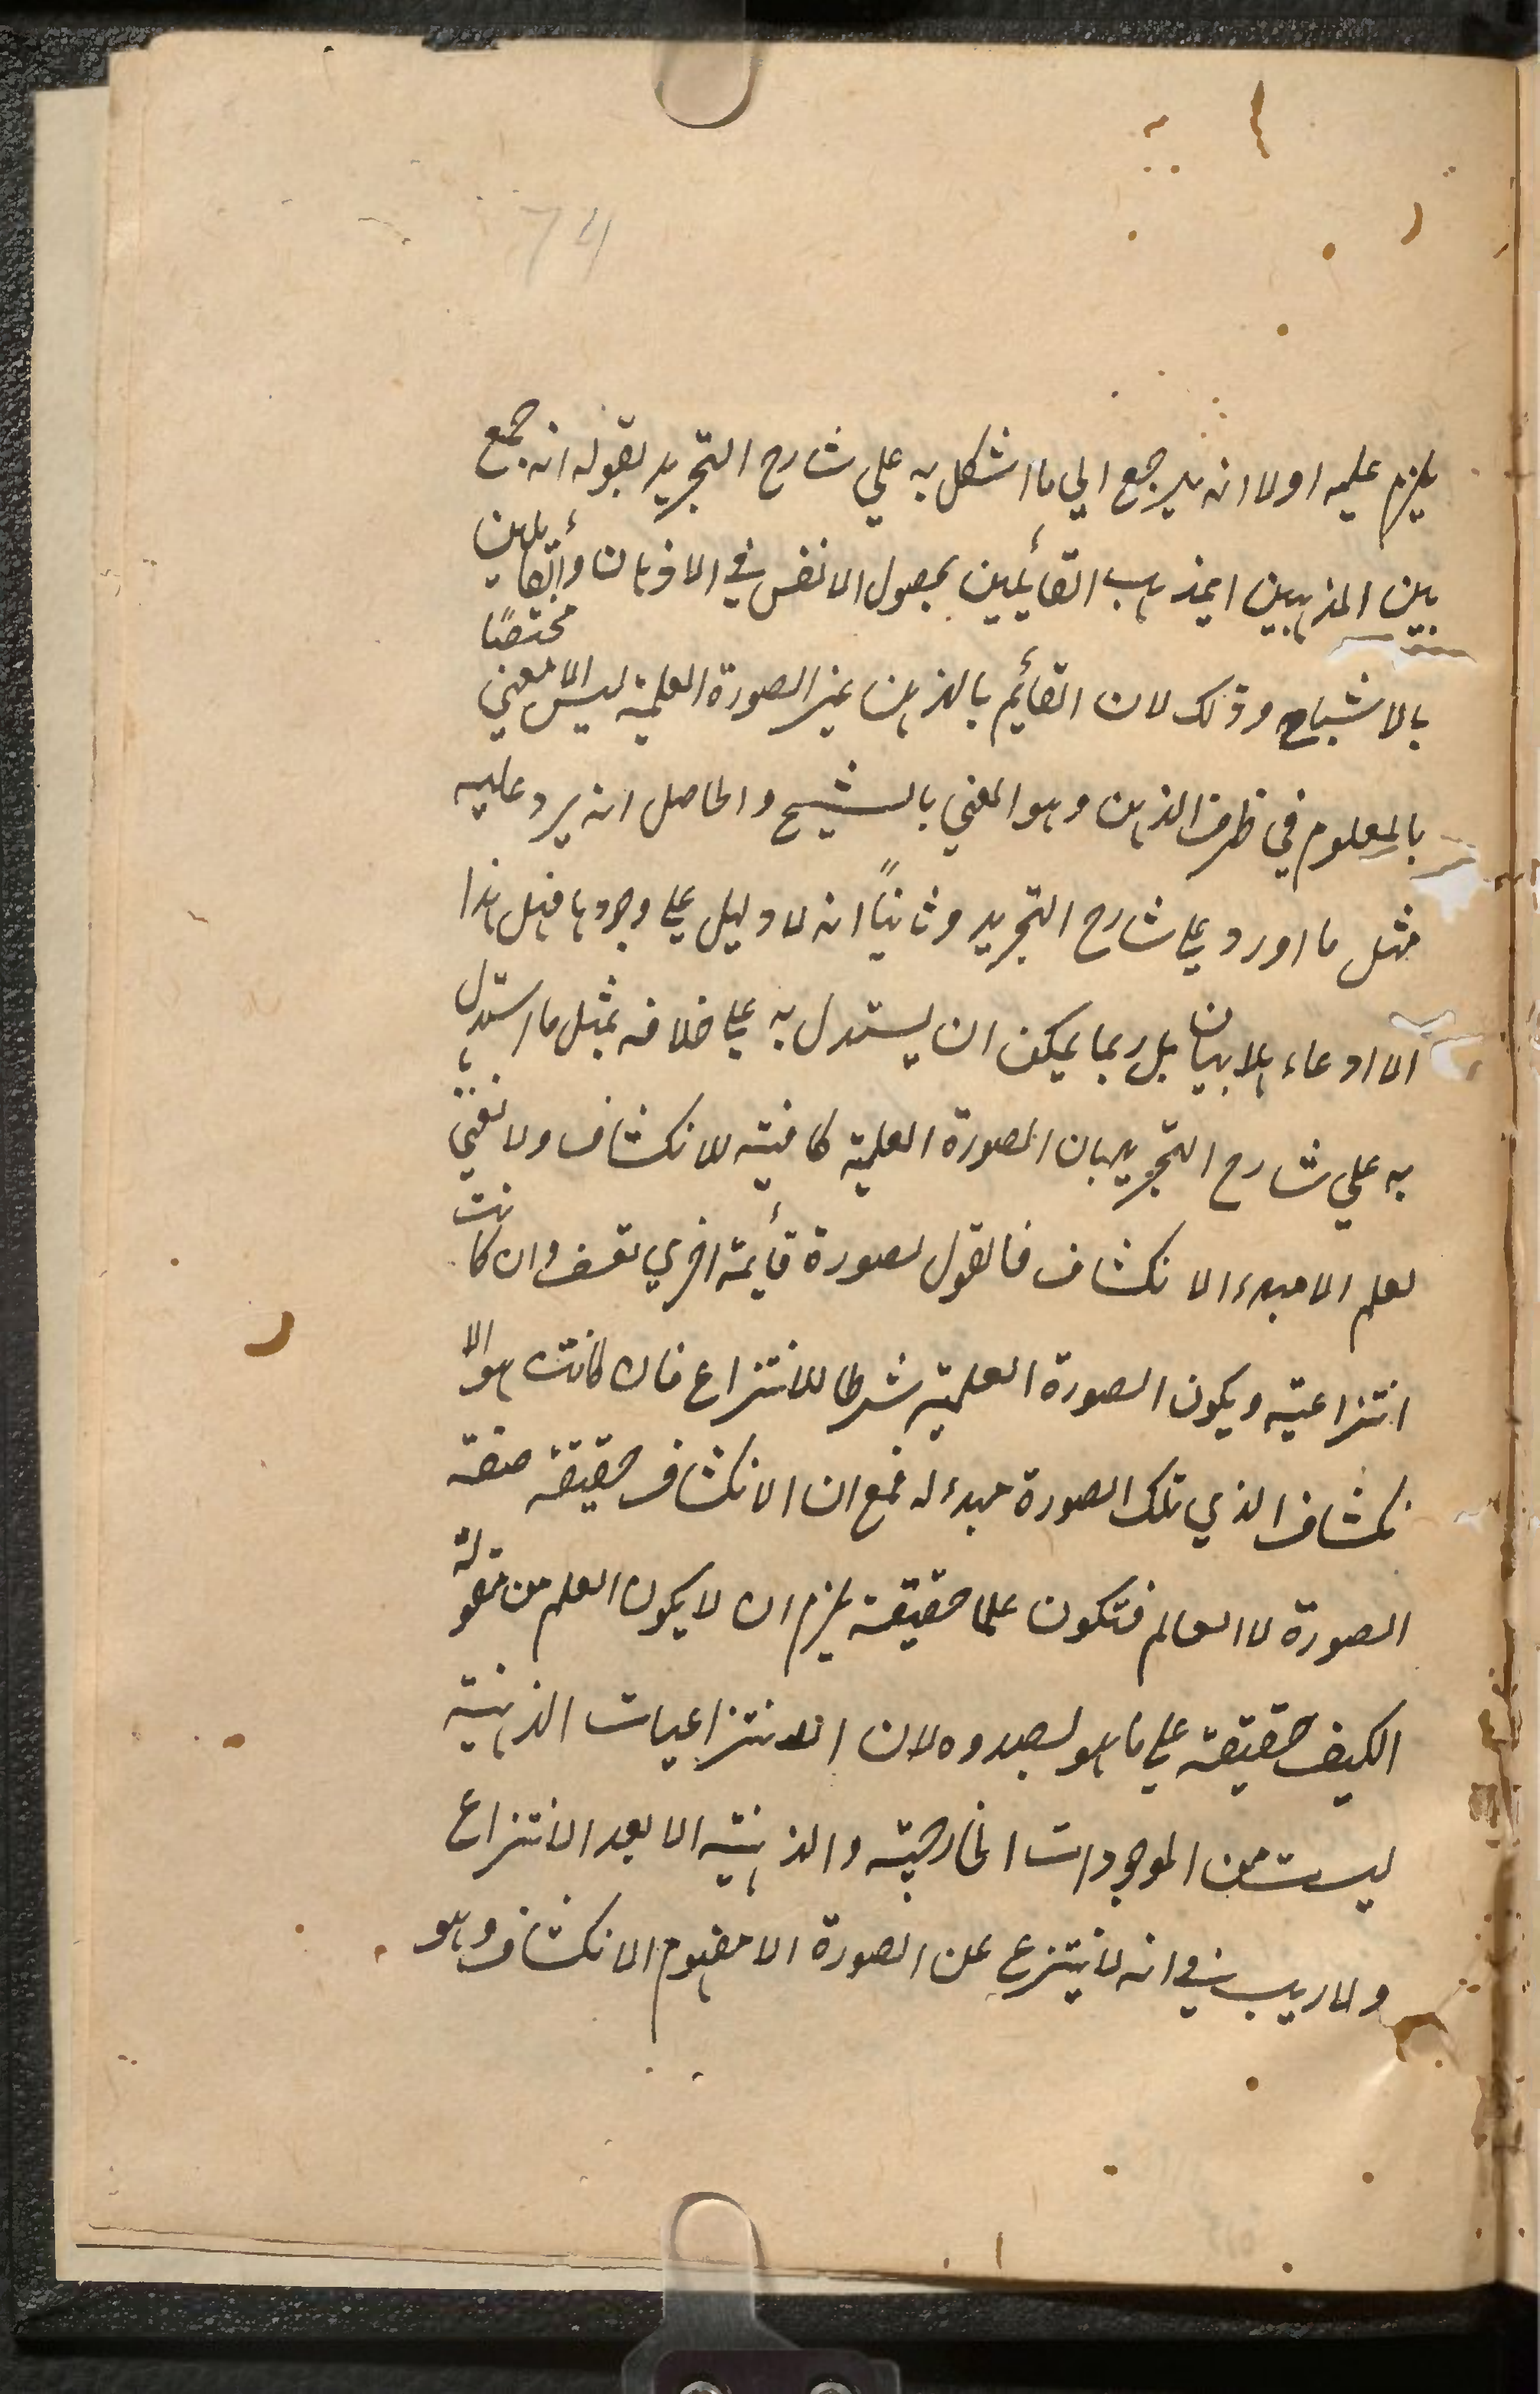 74
يلزم عليه اولا انه يرجع الي ما اشكل به علي شارح التجريد بقوله انه جمع
بين المذهبين ايمذهب القائيلين بحصول الانفس في الاذهان والقائيلين
بالاشباح وذلك لان القائيم بالذهن غير الصورة العلمية ليس الا معني مختصًا
بالمعلوم في ظرف الذهن وهو المعني بالشبح والحاصل انه يرد عليه
مثل ما اورد علي شارح التجريد وثانيًا انه لا دليل علي وجودها فهل هذا
الا ادعاء بلا بيان بل ربما يمكن ان يستدل به علي خلافه بمثل ما استدل
به علي شارح التجريد بان الصورة العلمية كافية للانكشاف ولا نعني با
لعلم الا مبدء الانكشاف فالقول بصورة قائيمة اخري تعسف وان كانت
انتزاعية ويكون الصورة العلمية شرطا للانتزاع فان كانت هو الا
نكشاف الذي تلك الصورة مبدء له فمع ان الانكشاف حقيقة صفة
الصورة لا العالم فتكون علما حقيقة يلزم ان لا يكون العلم من مقولة
الكيف حقيقة علي ما هو بصدده لان الانتزاعيات الذهنية
ليست من الموجودات الخارجية والذهنية الا بعد الانتزاع
ولا ريب في انه لا ينتزع عن الصورة الا مفهوم الانكشاف وهو